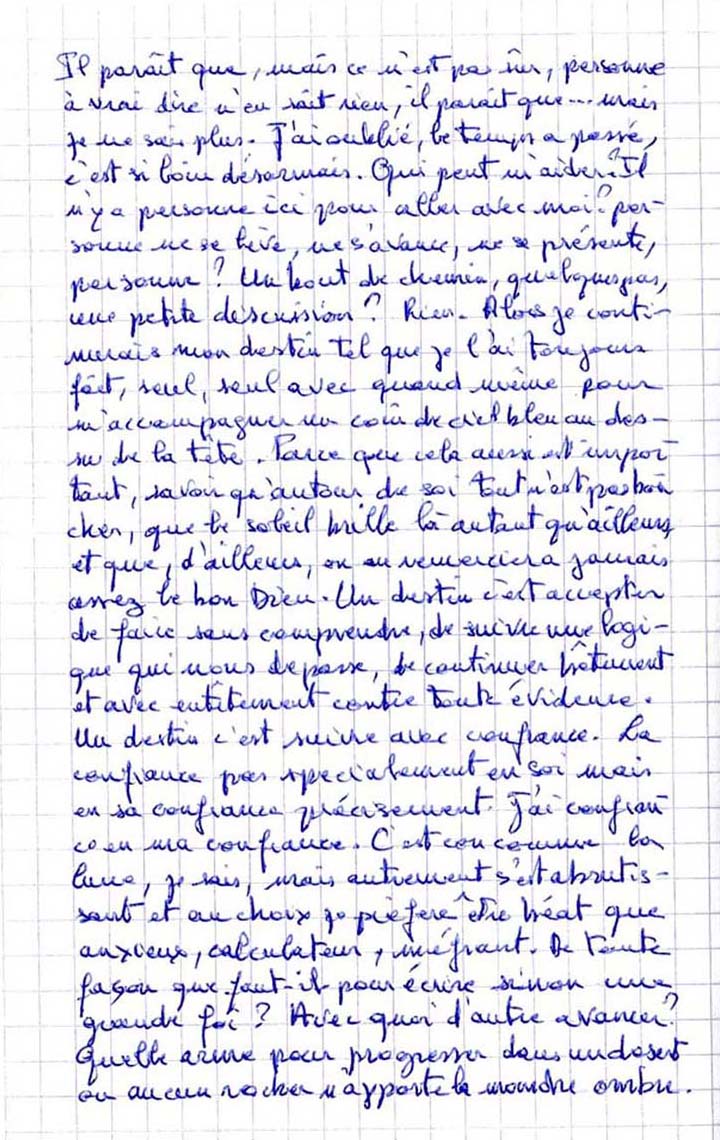 Il paraît que, mais ce n'est pas sûr, personne
à vrai dire n'en sait rien, il paraît que... mais
je ne sais plus. J'ai oublié, le temps a passé,
c'est si loin désormais. Qui peut m'aider? Il
n'y a personne ici pour aller avec moi? per-
sonne ne se lève, ne s'avance, ne se présente,
personne? Un bout de chemin, quelques pas,
une petite descussion? Rien. Alors je conti-
nuerais mon destin tel que je l'ai toujours
fait, seul, seul avec quand même pour
m'accompagner un coin de ciel bleu au des-
su de la tête. Parce que cela aussi est impor
tant, savoir qu'autour de soi tout n'est pas bon
cher, que le soleil brille là autant qu'ailleurs
et que, d'ailleurs, on en remerciera jamais
assez le bon Dieu. Un destin c'est accepter
de faire sans comprendre, de suivre une logi-
que qui nous dépasse, de continuer bêtement
et avec entêtement contre toute évidence.
Un destin c'est suivre avec confiance. La
confiance pas specialement en soi mais
en sa confiance précisement. J'ai confian
ce en ma confiance. C'est con comme la
lune, je sais, mais autrement s'est abrutis-
sant et au choix je préfère être béat que
anxieux, calculateur, méfiant. De toute
façon que faut-il pour écrire sinon une
grande foi? Avec quoi d'autre avancer?
Quelle arme pour progresser dans un desert
ou aucun rocher n'apporte la moindre ombre.